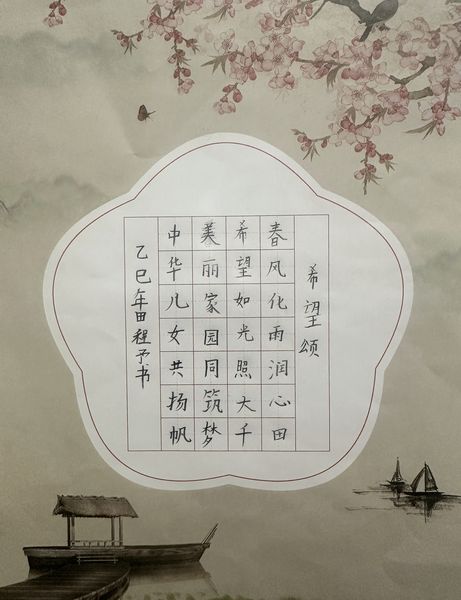 希望颂
春风化雨润心田
希望如光照大千
美丽家园同筑梦
中华儿女共扬帆
乙巳年田程予书